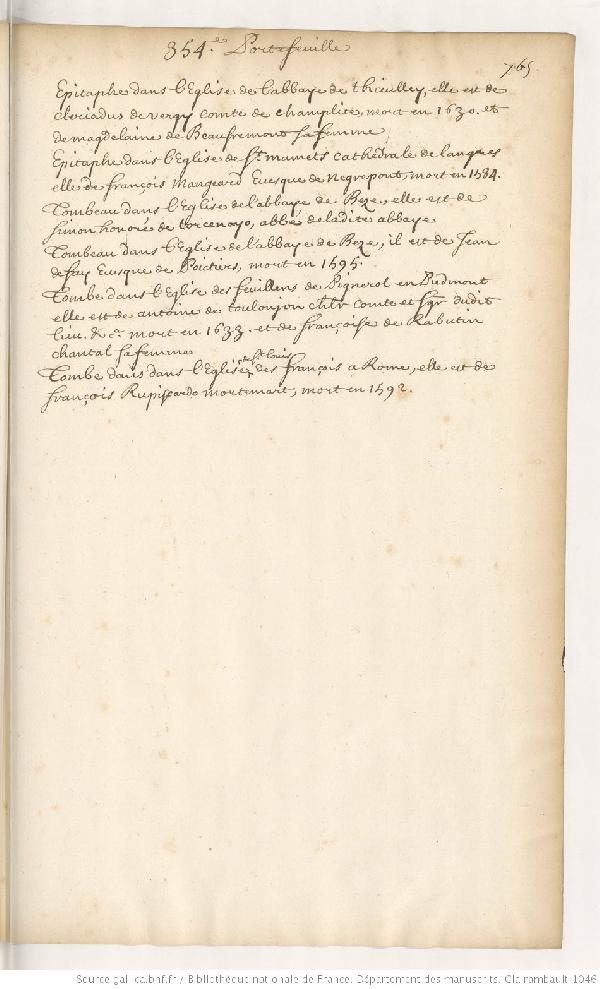 354.e Portefeuille
765.
Epitaphe dans l'Eglise de l'abbaye de thieulley, elle est de
cleriadus de vergy comte de champlite, mort en 1630. et
de magdelaine de Beaufremont sa femme,
Epitaphe dans l'Eglise de St. mamets cathedrale de langres
elle de françois Mangeard Euesque de Negrepont, mort en 1534.
Tombeau dans l'Eglise de l'abbaye de Beze, elle est de
simon honoré de torcenayo, abbé de ladite abbaye
Tombeau dans l'Eglise de l'abbaye de Beze, il est de Jean
de fay Euesque de Poictiers, mort en 1595.
Tombe dans l'Eglise des feuillens de Pignerol en Piedmont
elle est de antoine de toulonjon chlr comte et sgr dudit
lieu. &c. mort en 1633. et de françoise de Rabutin
chantal sa femme
Tombe dans dans l'Eglise de St Louis des françois a Rome, elle est de
françois Rupispardo mortemart, mort en 1592.
Source gallica.bnf.fr / Bibliothèque nationale de France. Département des manuscrits. Clairambault 1046